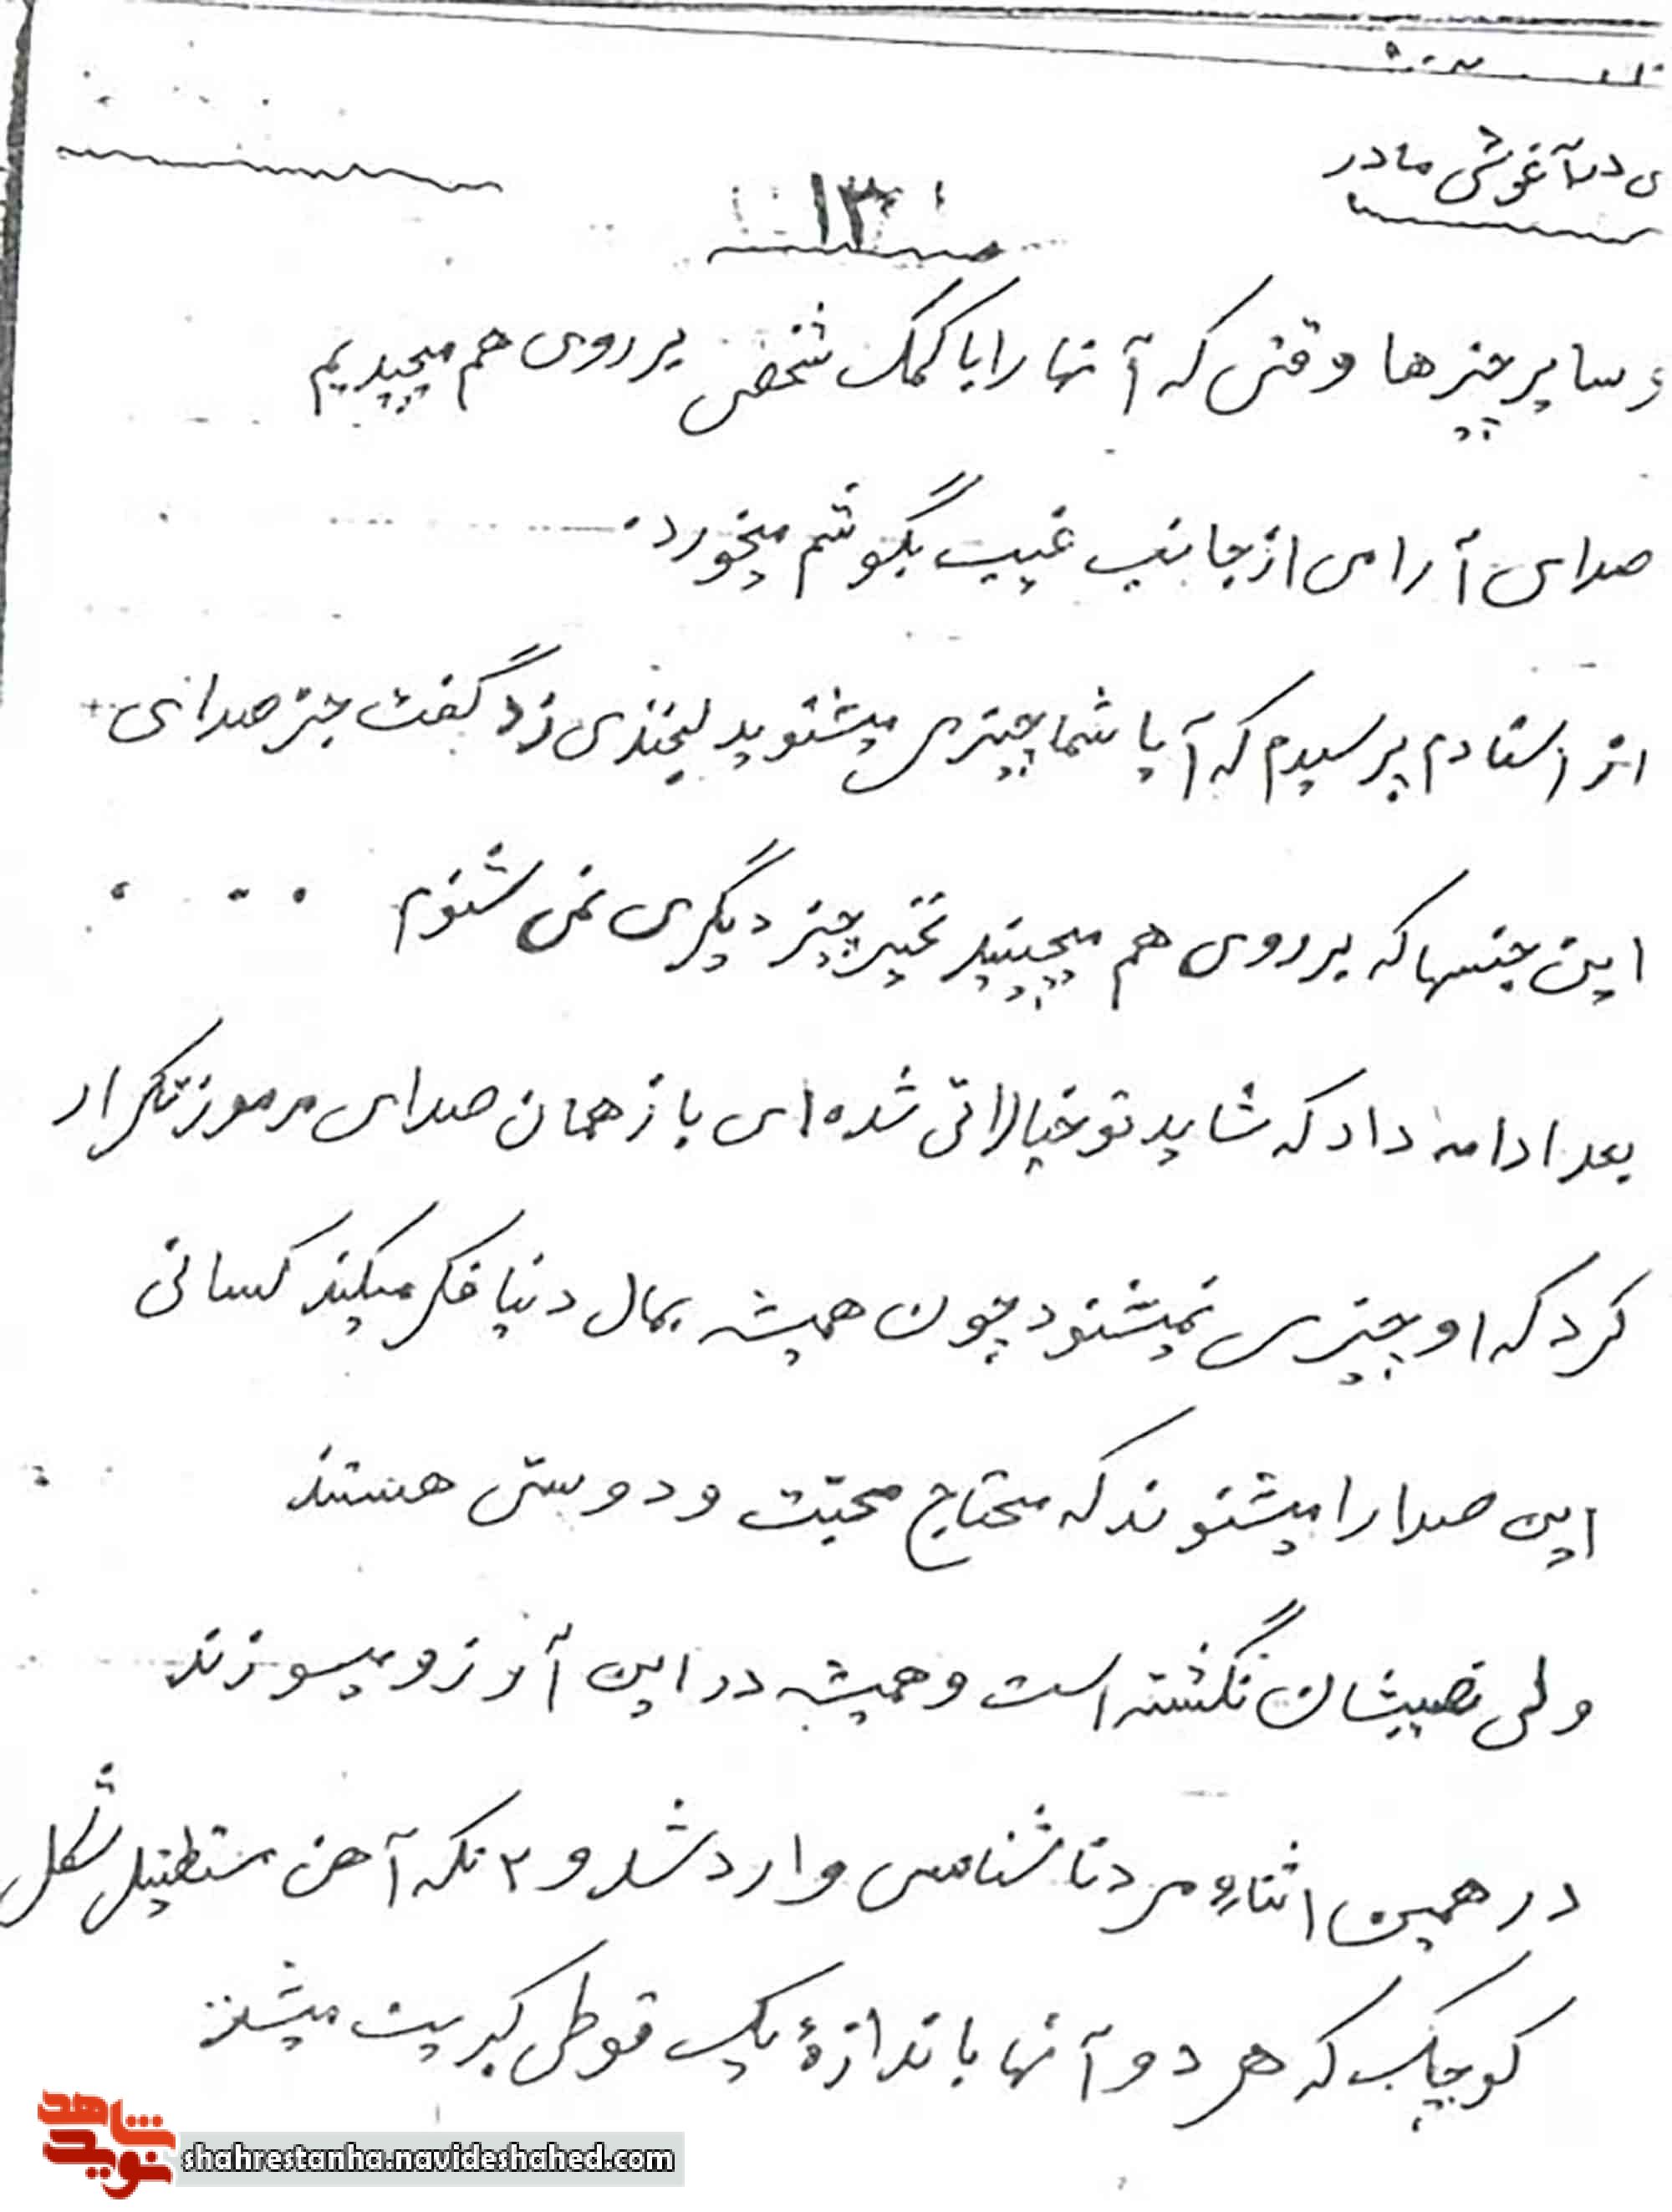 ی در آغوش مادر
۱۳
و سایر چیزها وقتی که آنها را با کمک شخصی بر روی هم میچیدیم
صدای آرامی از جانب غیب بگوشم میخورد.
از استادم پرسیدم که آیا شما چیزی میشنوید لبخندی زد گفت جز صدای
این جنسها که بر روی هم میچینید نخیر چیز دیگری نمی شنوم . . . .
بعد ادامه داد که شاید تو خیالاتی شده ای باز همان صدای مرموز تکرار
کرد که او چیزی نمیشنود چون همیشه بمال دنیا فکر میکند کسانی
این صدا را میشنوند که محتاج محبّت و دوستی هستند
ولی نصیبشان نگشته است و همیشه در این آرزو میسوزند
در همین اثناء مرد ناشناسی وارد شد و ۲ تکه آهن مستطیل شکل
کوچک که هر دو آنها باندازهٔ یک قوطی کبریت میشد
شاهد
نوید
shahrestanha.navideshahed.com